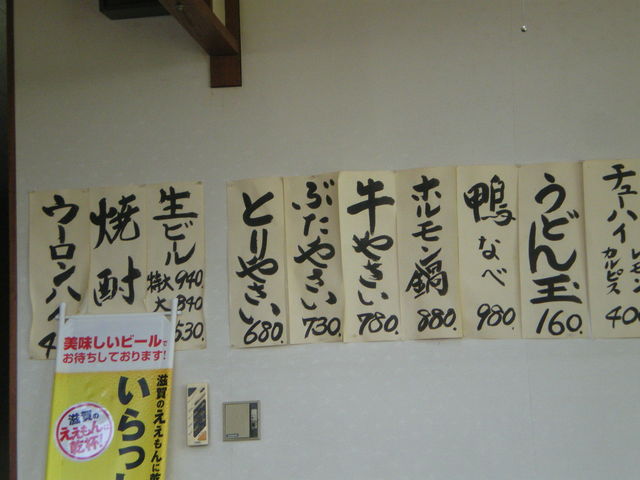 ウーロンハイ
焼酎
生ビール
特大 940.
大 840
530.
とりやさい 680.
ぶたやさい 730.
牛やさい 780.
ホルモン鍋 880.
鴨なべ 980.
うどん玉 160.
チューハイ
レモン
カルピス
400
美味しいビールを
お待ちしております!
いらっし
滋賀のええもんに乾
滋賀の
ええもんに
乾杯!